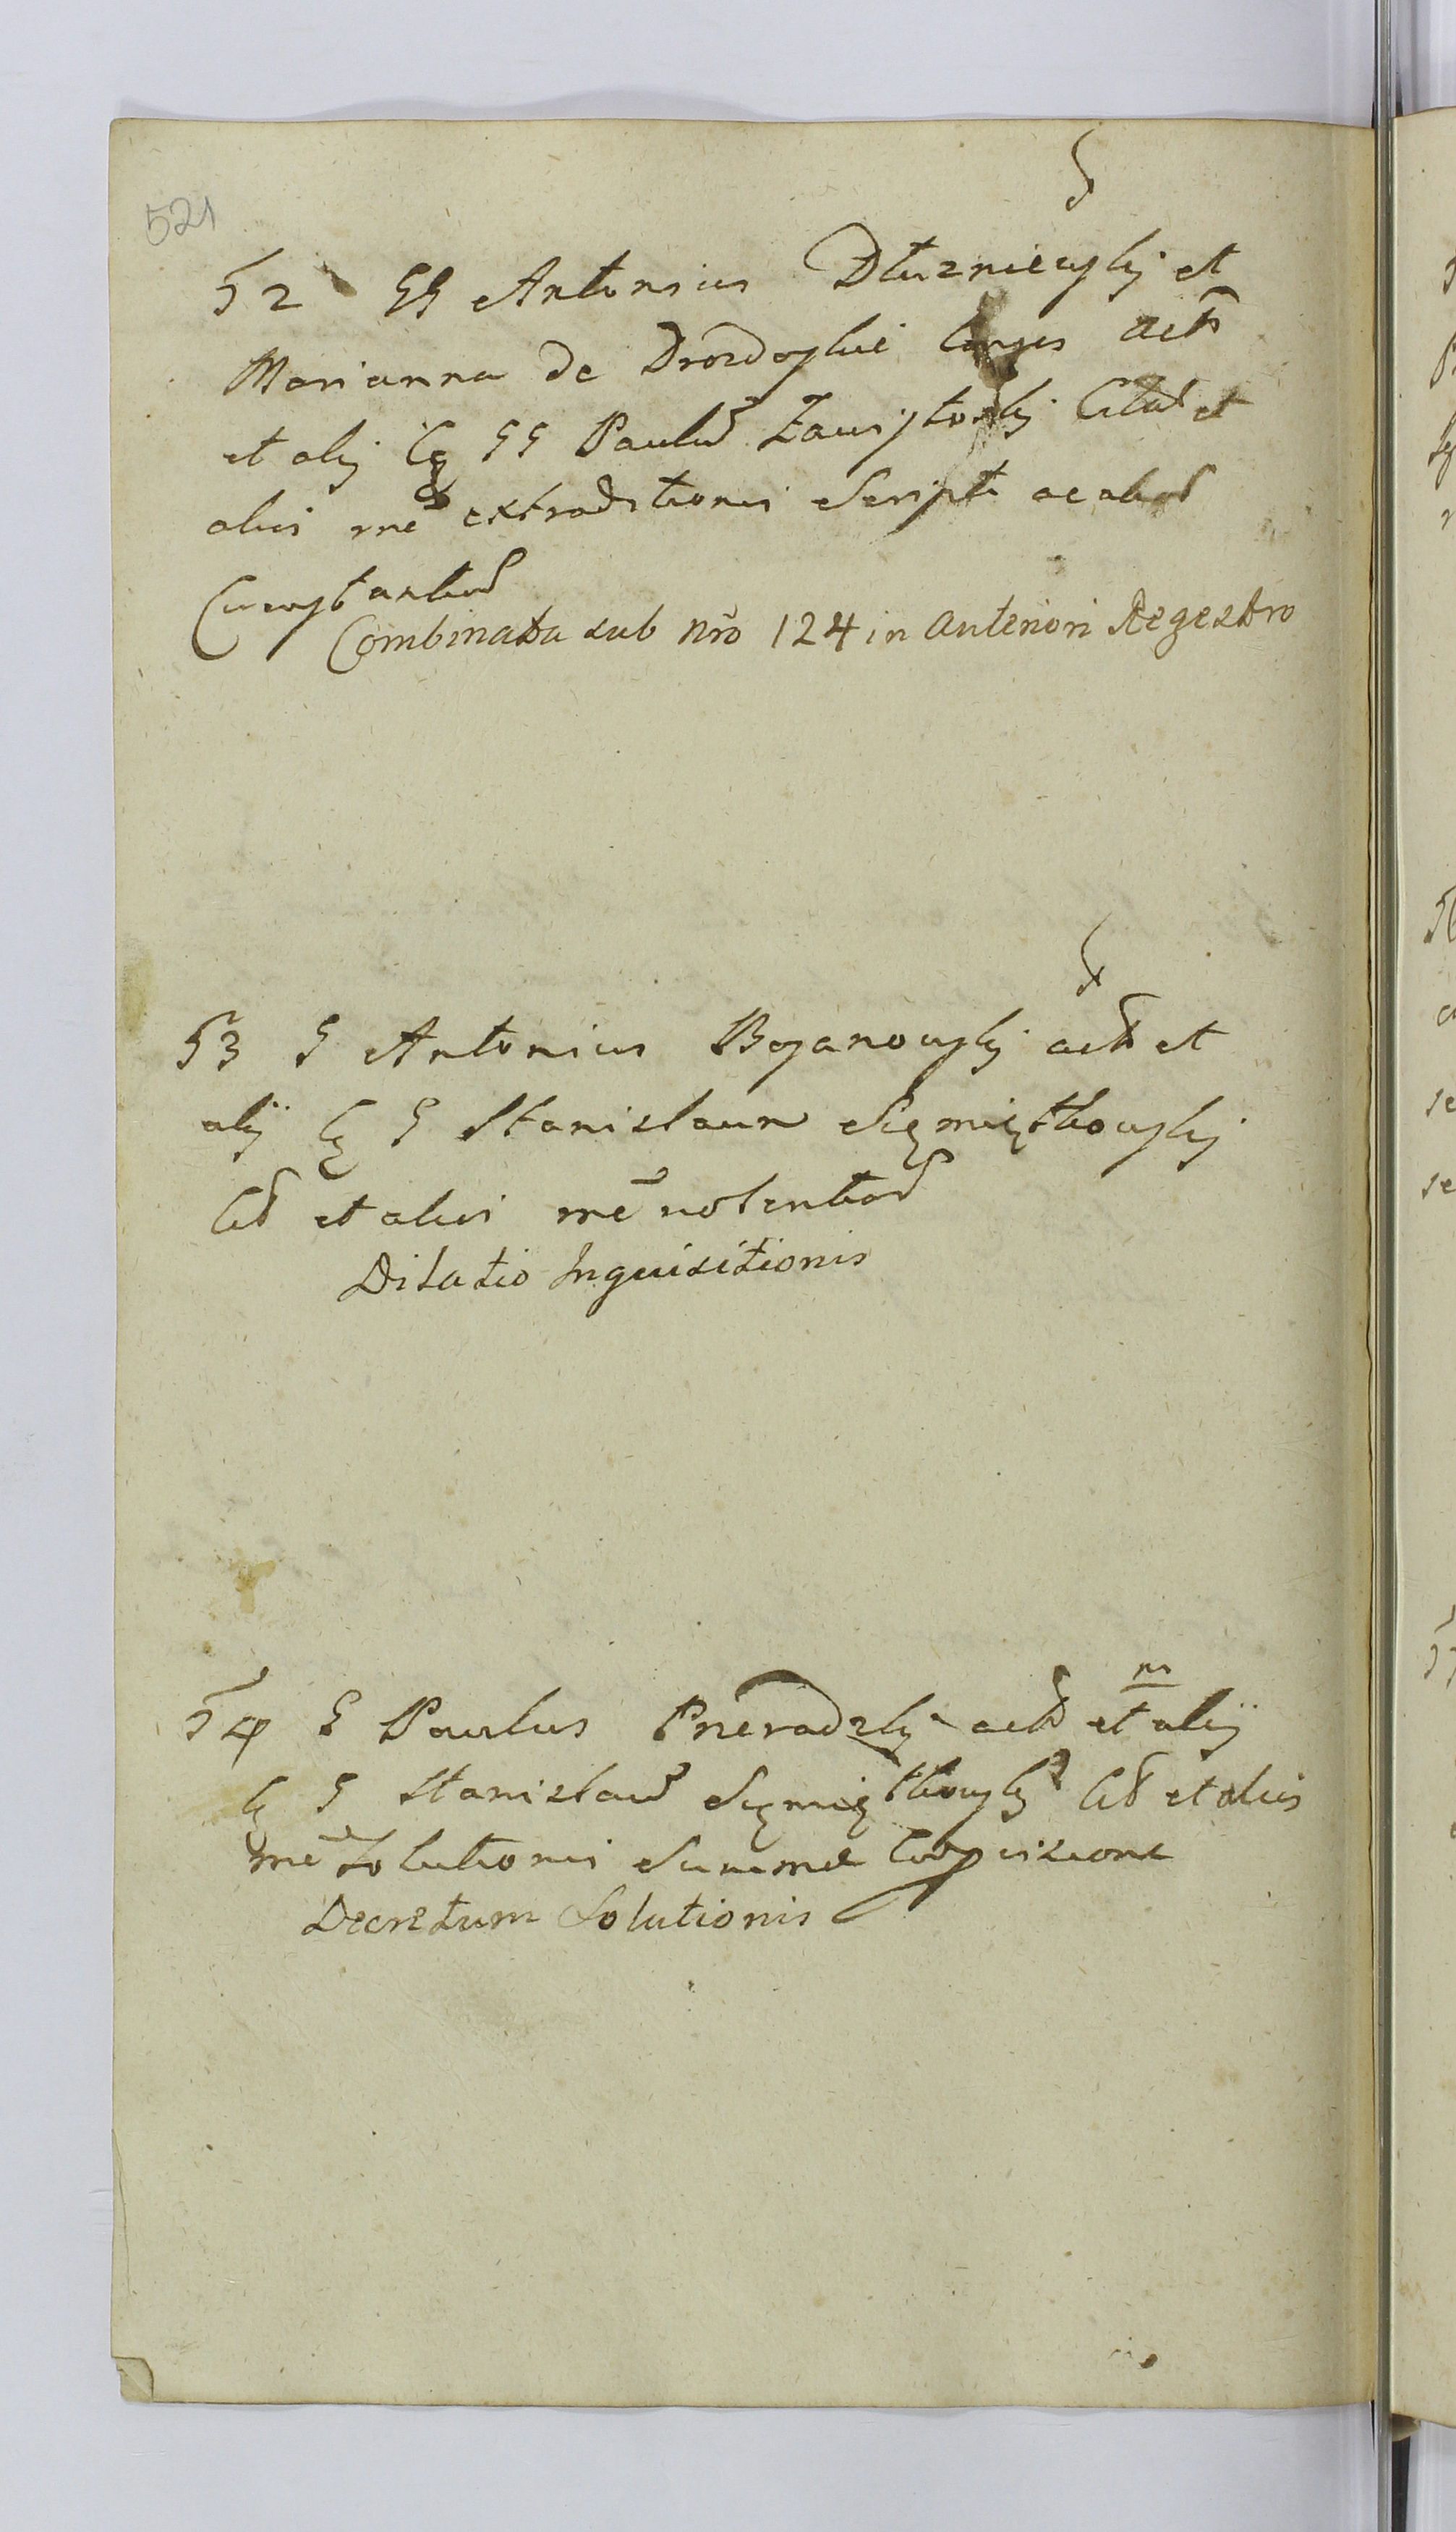 521
52 GG Antonius Dłuzniewskj et
Marianna de Drozdoskie Conges actr
et alij Cq GG Paulũ Zawistoskj Citat et
alios rne extraditionis Scripti ac aliar
Circumstantiar
Combinata sub nro 124 in Anteriori Regestro
53 G Antonius Boganowskj actr et
alij Cq G Stanislaum Siemiętkowskj
Cit et alios rne violentiar
Dilatio Inquisitionis
m
54 G Paulus Pneradzkj actr et alij
Cq G Stanislaũ Siemiętkowskj Cit et alios
rne Solutionis Summe
Decretum Solutionis